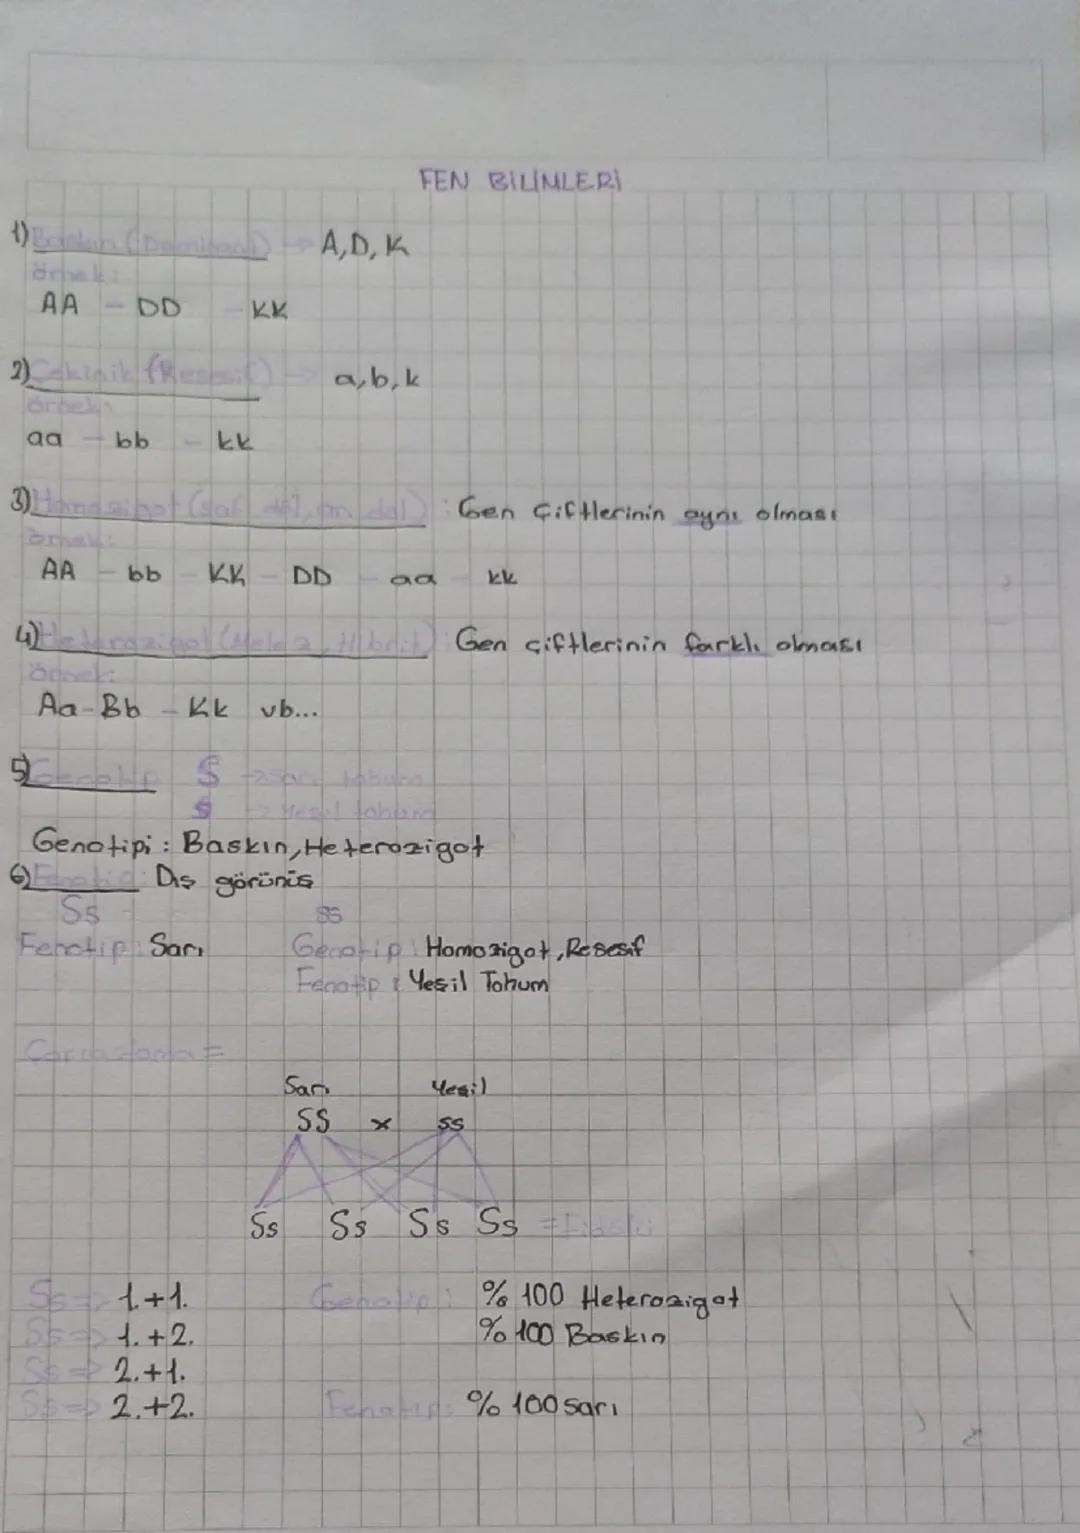 FEN BİLİMLERİ
1) Baskın (Dominant) → A, D, K
örnek:
AA - DD - KK
2) Çekinik (Resesif) → a, b, k
örnek:
aa - bb - kk
3) Homozigot (saf döl, arı döl) : Gen çiftlerinin aynı olması
örnek:
AA - bb - KK - DD - aa - kk
4) Heterozigot (Melez, Hibrit) : Gen çiftlerinin farklı olması
örnek:
Aa - Bb - Kk vb...
5) Genotip S → sarı tohum
s → Yeşil tohum
Genotipi : Baskın, Heterozigot
6) Fenotip : Dış görünüş
Ss ss
Fenotip : Sarı Genotip : Homozigot, Resesif
Fenotip : Yeşil Tohum
Çaprazlama =
Sarı Yeşil
SS x ss
Ss Ss Ss Ss
Ss => 1.+1. Genotip : % 100 Heterozigot
Ss => 1.+2. % 100 Baskın
Ss => 2.+1.
Ss => 2.+2. Fenotip : % 100 sarı